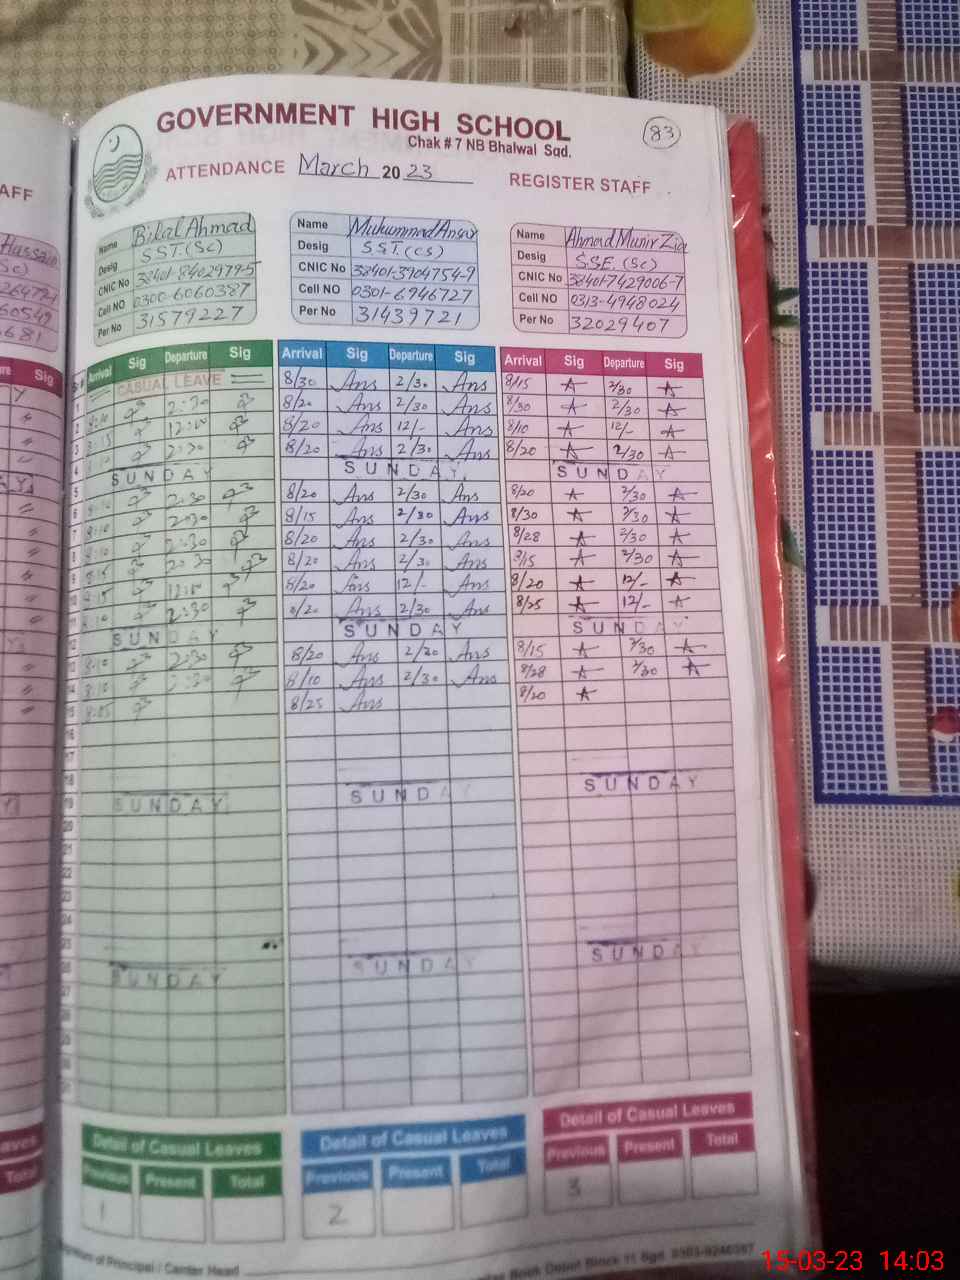 GOVERNMENT HIGH SCHOOL
Chak # 7 NB Bhalwal Sgd.
83
ATTENDANCE March 2023 REGISTER STAFF
Name Bilal Ahmad
Desig S.S.T (Sc)
CNIC No 38401-8402979-5
Cell NO 0300-6060387
Per No 31579227
Name Muhammad Ansar
Desig S.S.T. (CS)
CNIC No 38401-3904754-9
Cell NO 0301-6946727
Per No 31439721
Name Ahmad Munir Zia
Desig SSE. (Sc)
CNIC No 38401-7429006-7
Cell NO 0313-4948024
Per No 32029407
Arrival Sig Departure Sig Arrival Sig Departure Sig Arrival Sig Departure Sig
CASUAL LEAVE 8/30 Ans 2/30 Ans 8/15 2/30
2:30 8/20 Ans 2/30 Ans 8/30 2/30
8:15 8/20 Ans 12/- Ans 8/10 12/-
2:30 8/20 Ans 2/30 Ans 8/20 2/30
SUNDAY SUNDAY SUNDAY
2:30 8/20 Ans 2/30 Ans 8/20 2/30
8:10 2:30 8/15 Ans 2/30 Ans 8/30 2/30
8:10 2:30 8/20 Ans 2/30 Ans 8/28 2/30
8:15 2:30 8/20 Ans 2/30 Ans 8/15 2/30
8:15 8/20 Ans 12/- Ans 8/20 12/-
8:10 2:30 8/20 Ans 2/30 Ans 8/25 12/-
SUNDAY SUNDAY SUNDAY
8:10 2:30 8/20 Ans 2/20 Ans 8/15 2/30
8:10 2:30 8/10 Ans 2/30 Ans 8/28 2/30
8:05 8/25 Ans 8/20
SUNDAY SUNDAY SUNDAY
SUNDAY SUNDAY SUNDAY
Detail of Casual Leaves Detail of Casual Leaves Detail of Casual Leaves
Previous Present Total Previous Present Total Previous Present Total
1 2 3
of Principal / Center Head
Book Depot Block 11 Sgd. 0303-9246387
15-03-23 14:03